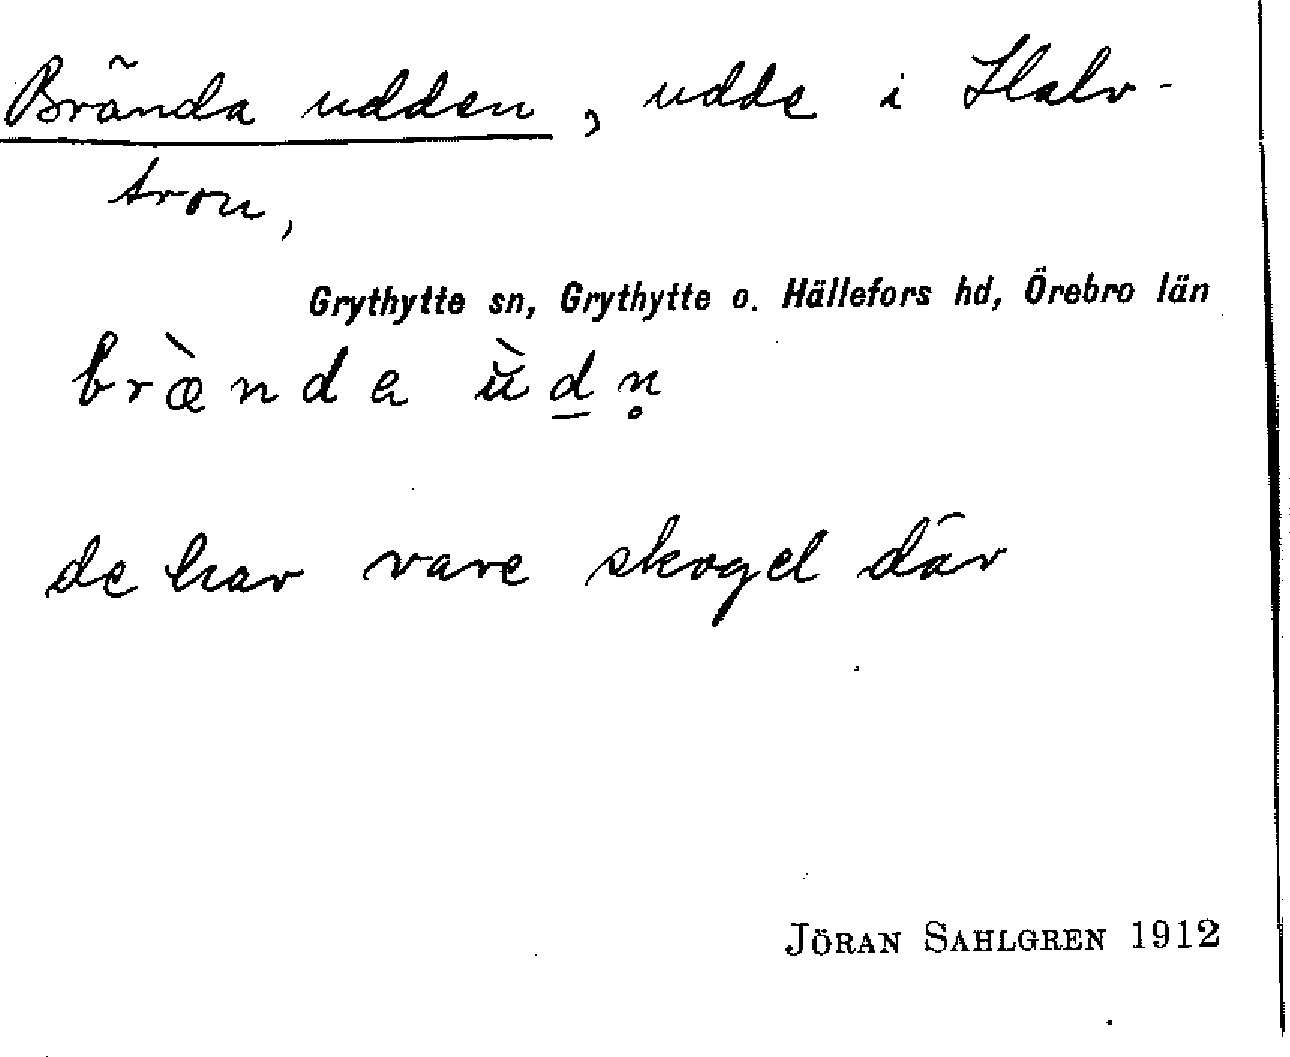 Brända udden, udde i Halv-
tron,
Grythytte sn, Grythytte o. Hällefors hd, Örebro län
bræ̀nda ùd̲n̥
de har vare skogel där
JÖRAN SAHLGREN 1912